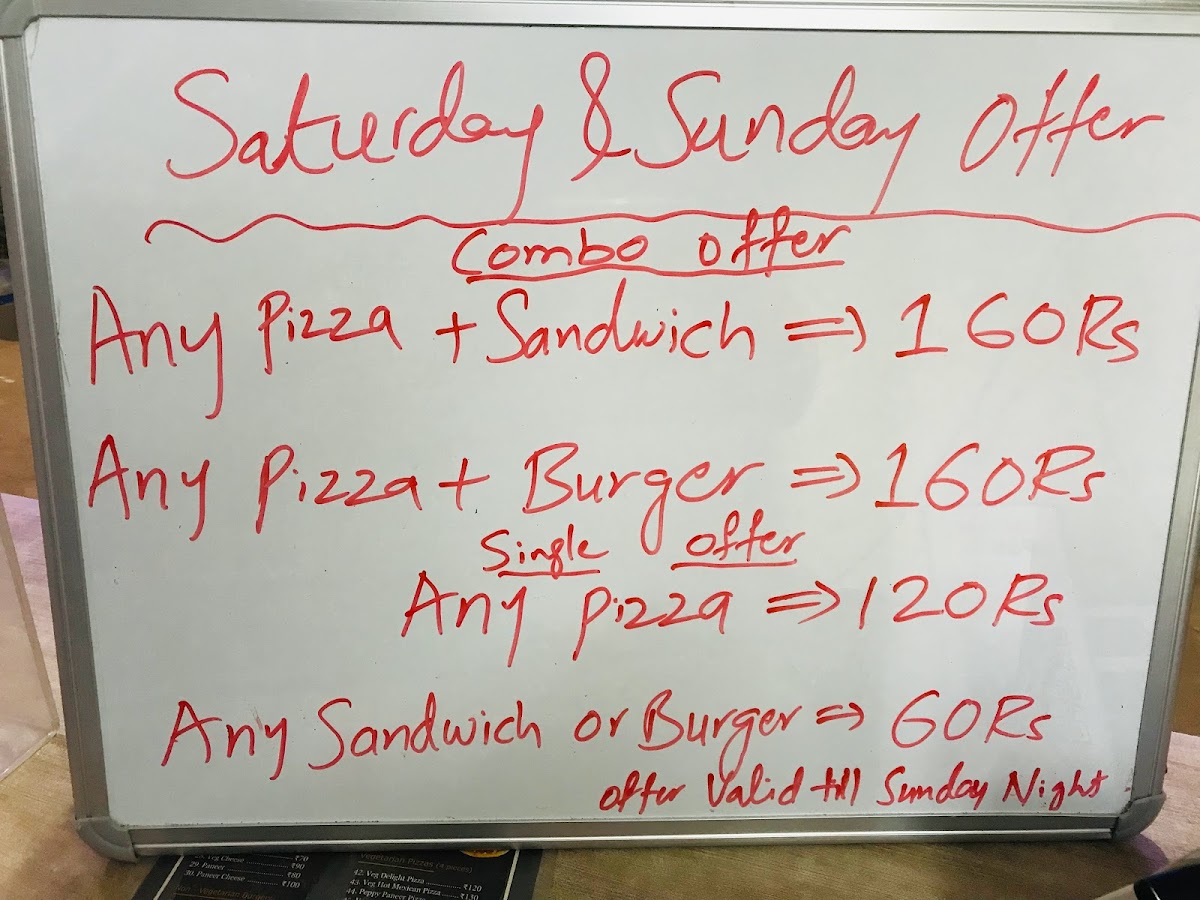 Saturday & Sunday Offer
Combo offer
Any Pizza + Sandwich => 160Rs
Any Pizza + Burger => 160Rs
Single offer
Any pizza => 120Rs
Any Sandwich or Burger => 60Rs
offer Valid till Sunday Night
Veg Cheese ₹70
29. Paneer ₹90
₹80
30. Paneer Cheese ₹100
Vegetarian Pizzas (4 pieces)
42. Veg Delight Pizza ₹120
43. Veg Hot Mexican Pizza ₹130
44. Peppy Paneer Pizza